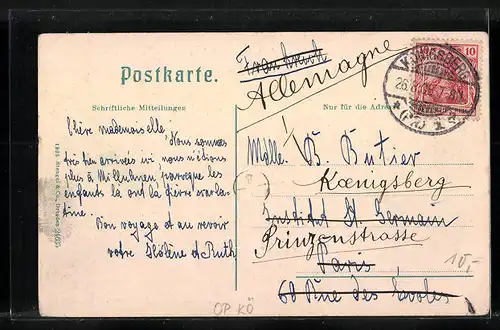 Postkarte.
Frankreich
Allemagne
KÖNIGSBERG
10
Schriftliche Mitteilungen
Nur für die Adresse
Chère mademoiselle,
Nous sommes
arrivées ici nous n'étions
à parceque les
enfants là ont la fièvre scarla-
tine.
Bon voyage et au revoir
votre Hélène et Ruth
Mdlle. B. Butier
Kœnigsberg
Institut St. Germain
Prinzenstrasse
Paris
60 Rue des Ecoles
10,-
OP KÖ